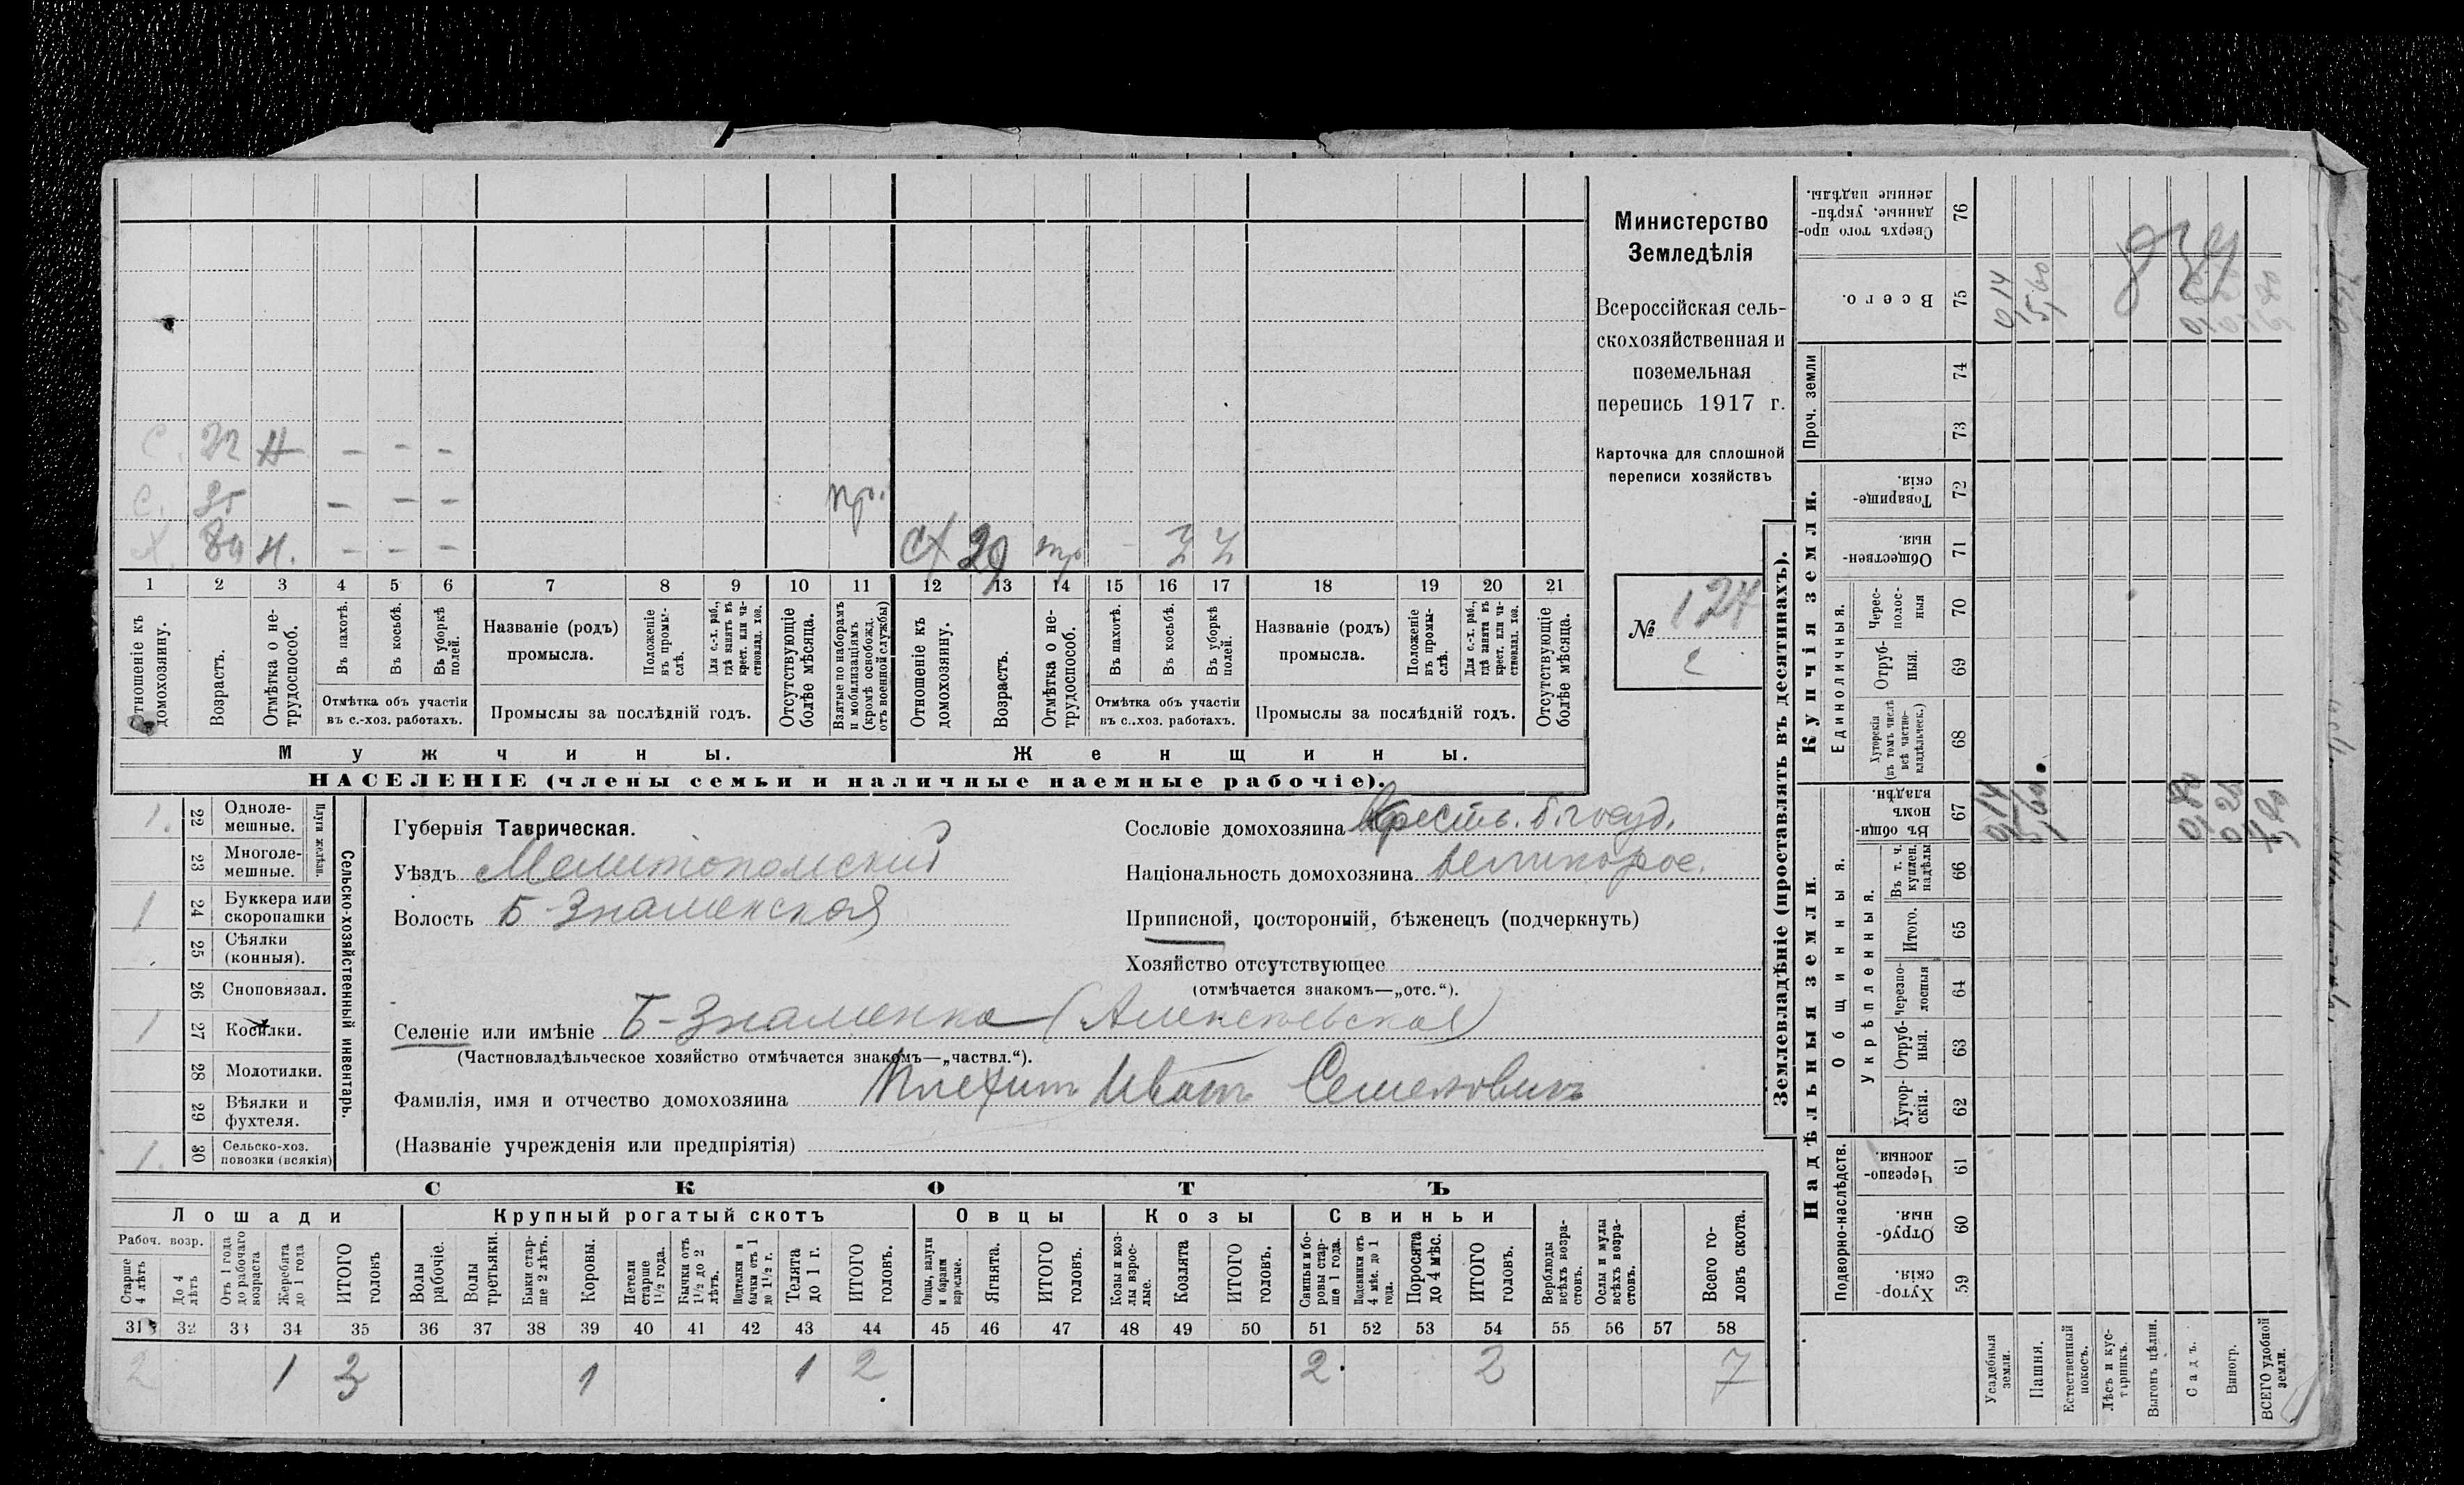 Министерство
Земледѣлія
Всероссійская сель-
скохозяйственная и
поземельная
перепись 1917 г.
Карточка для сплошной
переписи хозяйствъ
№ 127
С. 22 Н – – –
С. 35 – – – пр.
Х 80 Н. – – – СХ 29 – З З
1 2 3 4 5 6 7 8 9 10 11 12 13 14 15 16 17 18 19 20 21
Отношеніе къ домохозяину.
Возрастъ.
Отмѣтка о не-трудоспособ.
Въ пахотѣ.
Въ косьбѣ.
Въ уборкѣ полей.
Отмѣтка объ участіи
въ с.-хоз. работахъ.
Названіе (родъ)
промысла.
Положеніе въ промы-слѣ.
Для с.-х. раб., гдѣ занятъ въ крест. или ча-ствовлад. хоз.
Промыслы за послѣдній годъ.
Отсутствующіе болѣе мѣсяца.
Взятые по наборамъ и мобилизаціямъ (кромѣ освобожд. отъ военной службы)
Отношеніе къ домохозяину.
Возрастъ.
Отмѣтка о не-трудоспособ.
Въ пахотѣ.
Въ косьбѣ.
Въ уборкѣ полей.
Отмѣтка объ участіи
въ с..хоз. работахъ.
Названіе (родъ)
промысла.
Положеніе въ промы-слѣ.
Для с.-х. раб., гдѣ занята въ крест. или ча-ствовлад. хоз.
Промыслы за послѣдній годъ.
Отсутствующіе болѣе мѣсяца.
Мужчины.
Женщины.
НАСЕЛЕНІЕ (члены семьи и наличные наемные рабочіе).
Сельско-хозяйственный инвентарь.
Плуги желѣзн.
1. 22 Одноле-мешные.
23 Многоле-мешные.
1 24 Буккера или скоропашки
25 Сѣялки (конныя).
26 Сноповязал.
1 27 Косилки.
28 Молотилки.
29 Вѣялки и фухтеля.
1. 30 Сельско-хоз. повозки (всякія)
Губернія Таврическая.
Уѣздъ Мелитопольский
Волость Б-Знаменская
Сословіе домохозяина Крестъ. б. госуд.
Національность домохозяина великорос.
Приписной, посторонній, бѣженецъ (подчеркнуть)
Хозяйство отсутствующее
(отмѣчается знакомъ—„отс.“).
Селеніе или имѣніе Б-Знаменка (Алексѣевская)
(Частновладѣльческое хозяйство отмѣчается знакомъ—„частвл.“).
Фамилія, имя и отчество домохозяина Иванъ Семеновичъ
(Названіе учрежденія или предпріятія)
СКОТЪ
Лошади
Крупный рогатый скотъ
Овцы
Козы
Свиньи
Рабоч. возр.
Старше 4 лѣтъ
До 4 лѣтъ
Отъ 1 года до рабочаго возраста
Жеребята до 1 года
ИТОГО головъ
Волы рабочіе.
Волы третьяки.
Быки стар-ше 2 лѣтъ.
Коровы.
Нетели старше 1½ года.
Бычки отъ 1½ до 2 лѣтъ.
Подтелки и бычки отъ 1 до 1½ г.
Телята до 1 г.
ИТОГО головъ.
Овцы, валухи и бараны взрослые.
Ягнята.
ИТОГО головъ.
Козы и коз-лы взрос-лые.
Козлята
ИТОГО головъ.
Свиньи и бо-ровы стар-ше 1 года.
Подсвинки отъ 4 мѣс. до 1 года.
Поросята до 4 мѣс.
ИТОГО головъ.
Верблюды всѣхъ возра-стовъ.
Ослы и мулы всѣхъ возра-стовъ.
Всего го-ловъ скота.
31 32 33 34 35 36 37 38 39 40 41 42 43 44 45 46 47 48 49 50 51 52 53 54 55 56 57 58
2 1 3 1 1 2 2 2 7
Землевладѣніе (проставлять въ десятинахъ).
Надѣльныя земли.
Купчія земли.
Проч. земли
Подворно-наслѣдств.
Общинныя.
Укрѣпленныя.
Единоличныя.
Сверхъ того про-данные, укрѣп-ленные надѣлы. 76
Всего. 75 0,14 5,60
839
74
73
Товарище-скія. 72
Обществен-ныя. 71
Черес-полос-ныя 70
Отруб-ныя. 69
Хуторскія (въ томъ числѣ всѣ частно-владѣльческ.) 68
Въ общин-номъ владѣн. 67 0,14 5,60
Въ т. ч. куплен. надѣлы 66
Итого. 65
Черезпо-лосныя 64
Отруб-ныя. 63
Хутор-скія. 62
Черезпо-лосныя. 61
Отруб-ныя. 60
Хутор-скія. 59
Усадебныя земли.
Пашня.
Естественный покосъ.
Лѣсъ и кус-тарникъ.
Выгонъ цѣлин.
Садъ.
Виногр.
ВСЕГО удобной земли.